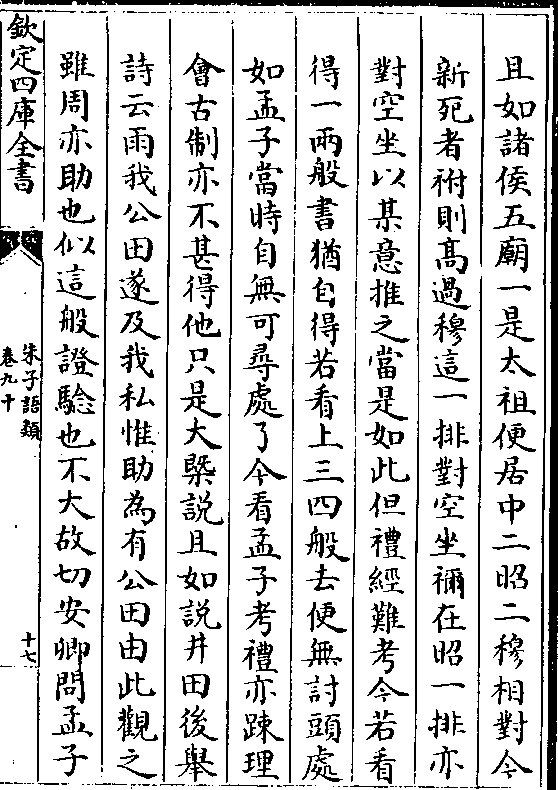 且如諸侯五廟一是太祖便居中二昭二穆相對今
新死者祔則髙過穆這一排對空坐禰在昭一排亦
對空坐以某意推之當是如此但禮經難考今若看
得一兩般書猶自得若看上三四般去便無討頭處
如孟子當時自無可尋處了今看孟子考禮亦踈理
會古制亦不甚得他只是大槩說且如說井田後舉
詩云雨我公田遂及我私惟助為有公田由此觀之
雖周亦助也似這般證驗也不大故切安卿問孟子
欽定四庫全書
朱子語類
卷九十
十七